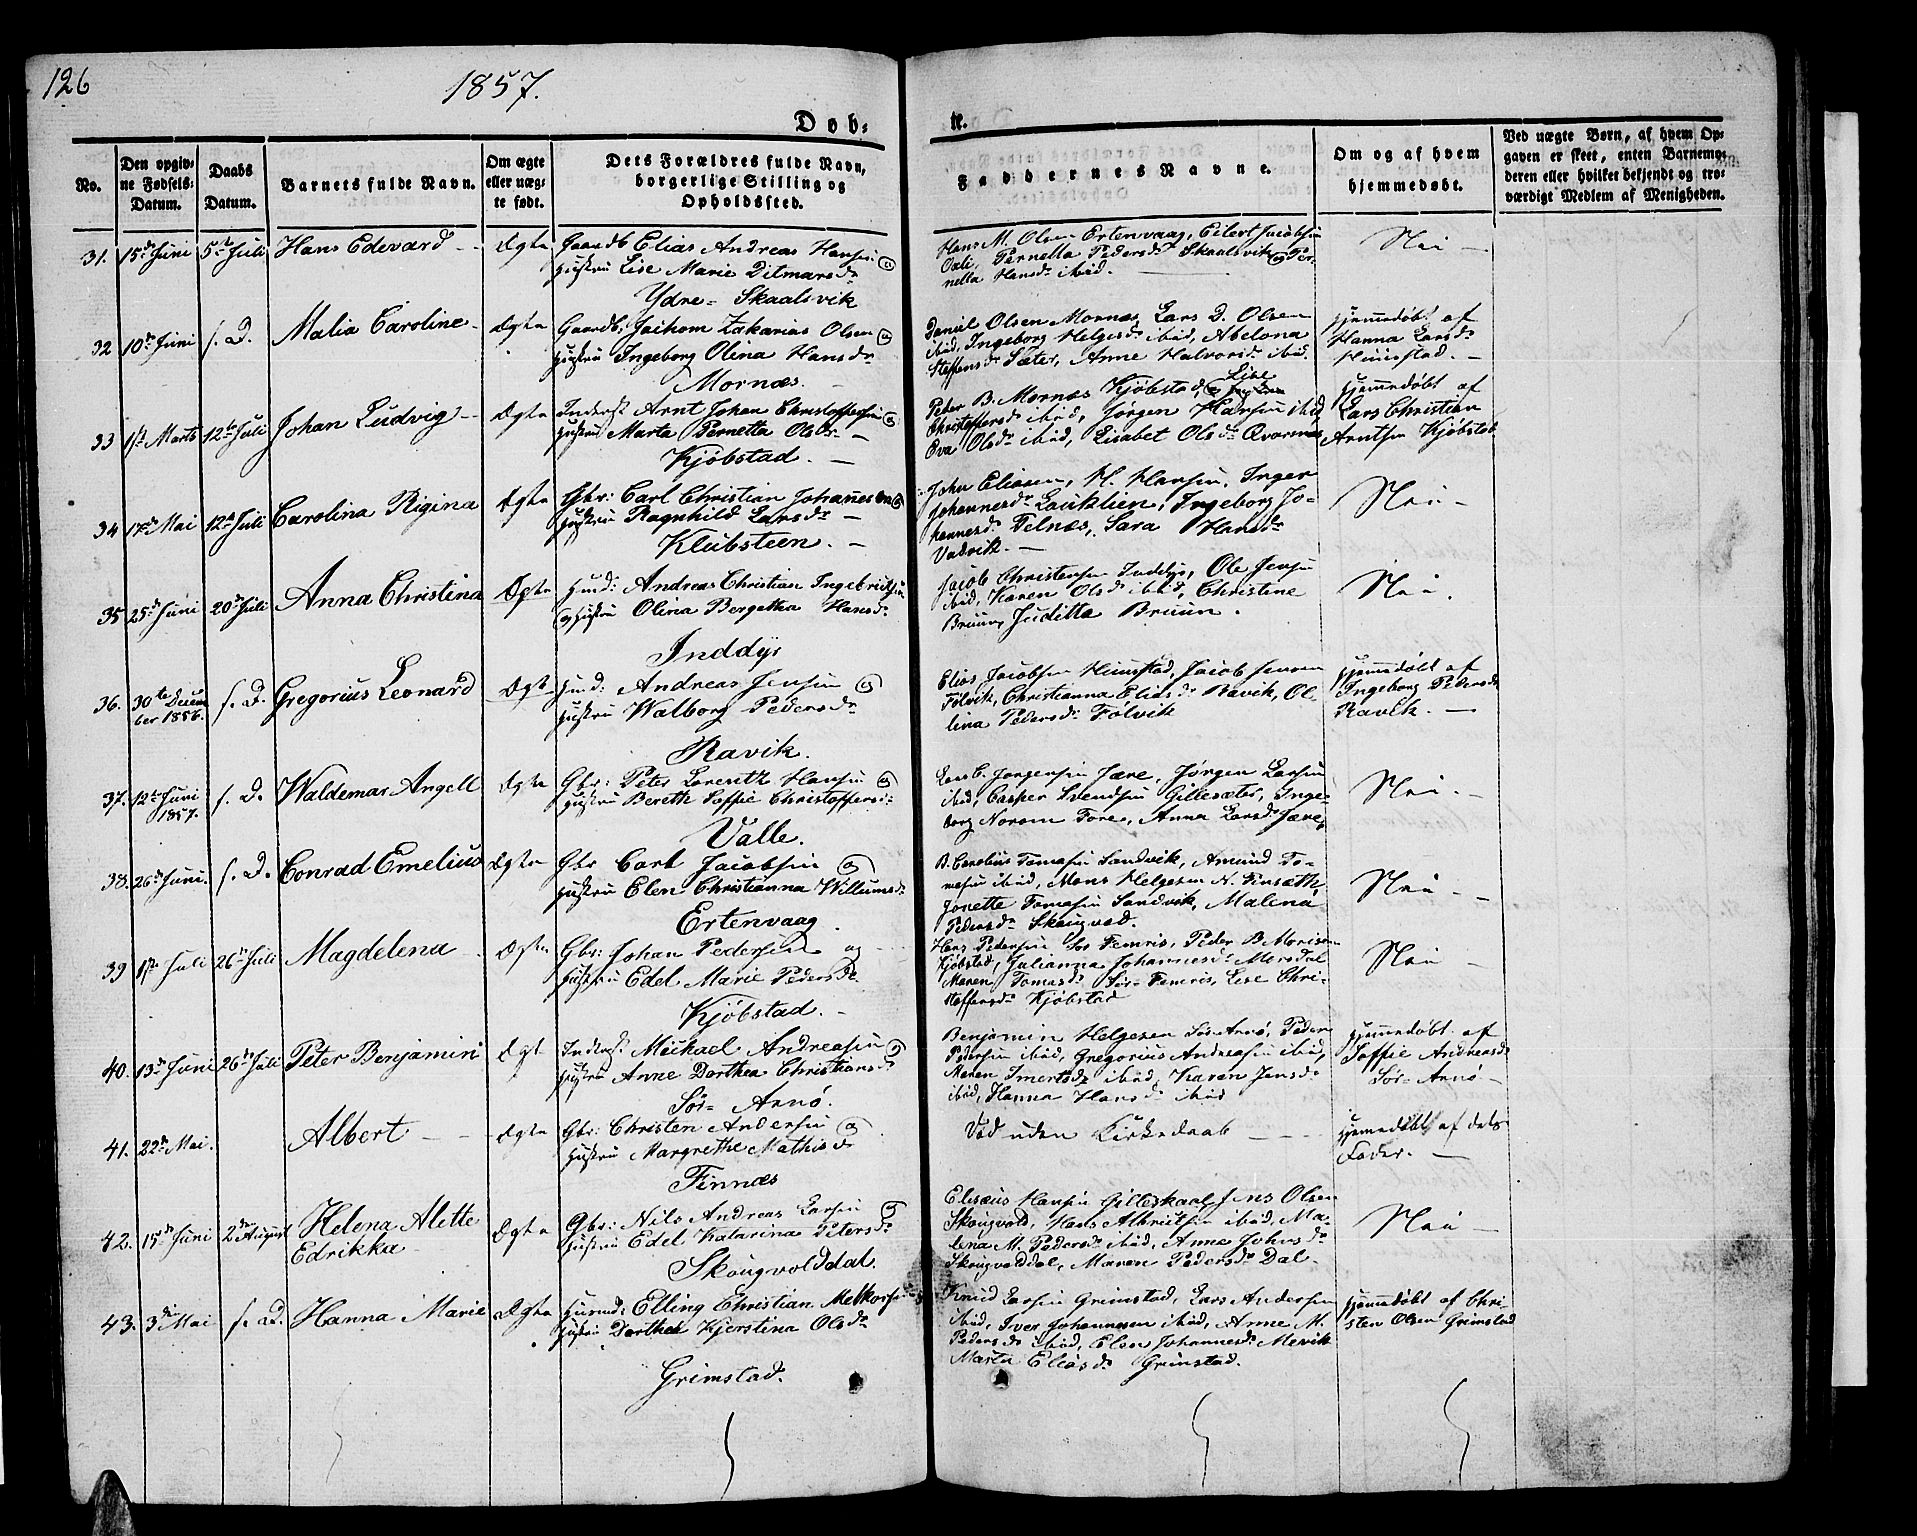 126
1857.
Døb-
te.
No.
Den opgiv-
ne Fødsels-
Datum.
Daabs
Datum.
Barnets fulde Navn.
Om ægte
eller uæg-
te født.
Dets Forældres fulde Navn,
borgerlige Stilling og
Opholdssted.
Faddernes Navne.
Om og af hvem
hjemmedøbt.
Ved uægte Børn, af hvem Op-
gaven er skeet, enten Barnemo-
deren eller hvilket bekjendt og tro-
værdigt Medlem af Menigheden.
31. 15de Juni 5te Juli Hans Edevard - Ægte
Gaardb. Elias Andreas Hansen og
Hustru Lise Marie Ditmarsdr
Ydre- Skaalsvik
Hans M. Olsen Ertenvaag, Eilert Jacobsen
Pernella Pedersdr Skaalsvik og Per-
nella Hansdr ibid.
Nei -
32 10de Juni s. D. Malia Caroline - Ægte
Gaardb. Joichom Zakarias Olsen og
Hustru Ingeborg Olina Hansdr
Mornæs. -
Daniel Olsen Mornæs, Lars D. Olsen
ibid, Ingeborg Helgesdr ibid, Abelona
Steffensdr Sæter, Anne Halvorsdr ibid.
Hjemmedøbt af
Hanna Larsdr
Hunstad. -
33 1ste Marts 12te Juli Johan Ludvig - Ægte
Inderst Arnt Johan Christoffersen og
Hustru Marta Pernella Olsdr -
Kjøbstad. -
Peter B. Mornæs Kjøbstad, Lise
Christoffersdr ibid, Jørgen Hansen ibid
Eva Olsdr ibid, Lisabet Olsdr Qvarnnes
Hjemmedøbt af
Lars Christian
Arntsen Kjøbstad
34 17de Mai 12te Juli Carolina Rigina Ægte
Gbr: Carl Christian Johanesen og
Hustru Ragnhild Larsdr -
Klubsteen. -
John Eliasen, H. Hansen, Inger
Johannesdr Lauklien, Ingeborg Jo-
hannesdr Telnæs, Sara Hansdr
Vadvik. -
Nei -
35 25de Juni 20de Juli Anna Christina Ægte
Huusd: Andreas Christian Ingebrichtsen
og Hustru Olina Bergetha Hansdr
Inddyr
Jacob Christensen Inddyr, Ole Jensen
ibid, Karen Olsdr ibid, Christine
Bruun, Juditta Bruun.
Nei.
36. 30te Decem
ber 1856. s. D. Gregorius Leonard Ægte
Huusd: Andreas Jensen og
Hustru Walborg Pedersdr
Ravik.
Elias Jacobsen Hunstad, Jacob Jensen
Følvik, Christianna Eliasdr Ravik, Ol-
lina Pedersdr Følvik
Hjemmedøbt af
Ingeborg Pedersdr
Ravik. -
37. 12te Juni
1857. s. D. Waldemar Angell Ægte
Gbr: Peter Lorentz Hansen og
Hustru Bereth Soffie Christoffersdr
Valle.
Lars C. Jørgensen Jære, Jørgen Larsen
ibid, Casper Svendsen Gillesæter, Inge-
borg Norum Tore, Anna Larsdr Jære,
Nei. -
38. 26de Juni. s. D. Conrad Emelius Ægte
Gbr Carl Jacobsen og
Hustru Elen Christianna Willumsdr
Ertenvaag.
B. Carolius Tomasen Sandvik, Amund To-
masen ibid, Mons Helgesen N. Finsæth,
Jonette Tomasen Sandvik, Malena
Pedersdr Skougvold.
Nei -
39 1ste Juli 26de Juli Magdelena - Ægte
Gbr: Johan Pedersen og
Hustru Edel Marie Pedersdr
Kjøbstad. -
Hans Pedersen Sør Femris, Peder B. Morisen
Kjøbstad, Julianna Johannesdr Mersdal
Maren Tomasdr Sør- Femris, Lise Chri-
stoffersdr Kjøbstad
Nei -
40. 13de Juni 26de Juli Peter Benjamin Ægt
Inderst. Mickael Andreasen og
Hustru Anne Dorthea Christiansdr
Sør- Arnø.
Benjamin Helgesen Sør Arnø, Peder
Pedersen ibid, Gregorius Andreasen ibid,
Maren Imertsdr ibid, Karen Jensdr
ibid, Hanna Hansdr ibid
Hjemmedøbt af
Soffie Andreasdr
Sør- Arnø -
41. 22de Mai. Albert - - - Ægte
Gbr: Christen Andersen og
Hustru Margrethe Mathisdr
Finnæs
Død uden Kirkedaab - - -
Hjemmedøbt af dets
Fader. -
42. 15de Juni 2den August Helena Alette
Edrikka - Ægte
Gbr: Nils Andreas Larsen og
Hustru Edel Katarina Petersdr
Skougvolddal.
Elisæus Hansen Gilleskaal, Jens Olsen
Skougvold, Hans Albrictsen ibid, Ma-
lena M. Pedersdr ibid, Anne Johnsdr
Skougvolddal, Maren Pedersdr Dal -
Nei -
43. 3die Mai s. D. Hanna Marie Ægte
Huusmd: Elling Christian Melkorsen og
Hustru Dorthea Kjerstina Olsdr
Grimstad.
Knud Larsen Grimstad, Lars Andersen
ibid, Iver Johannesen ibid, Anne M.
Pedersdr ibid, Elen Johannesdr Mevik
Marta Eliasdr Grimstad.
Hjemmedøbt af Chri-
sten Olsen Grimstad